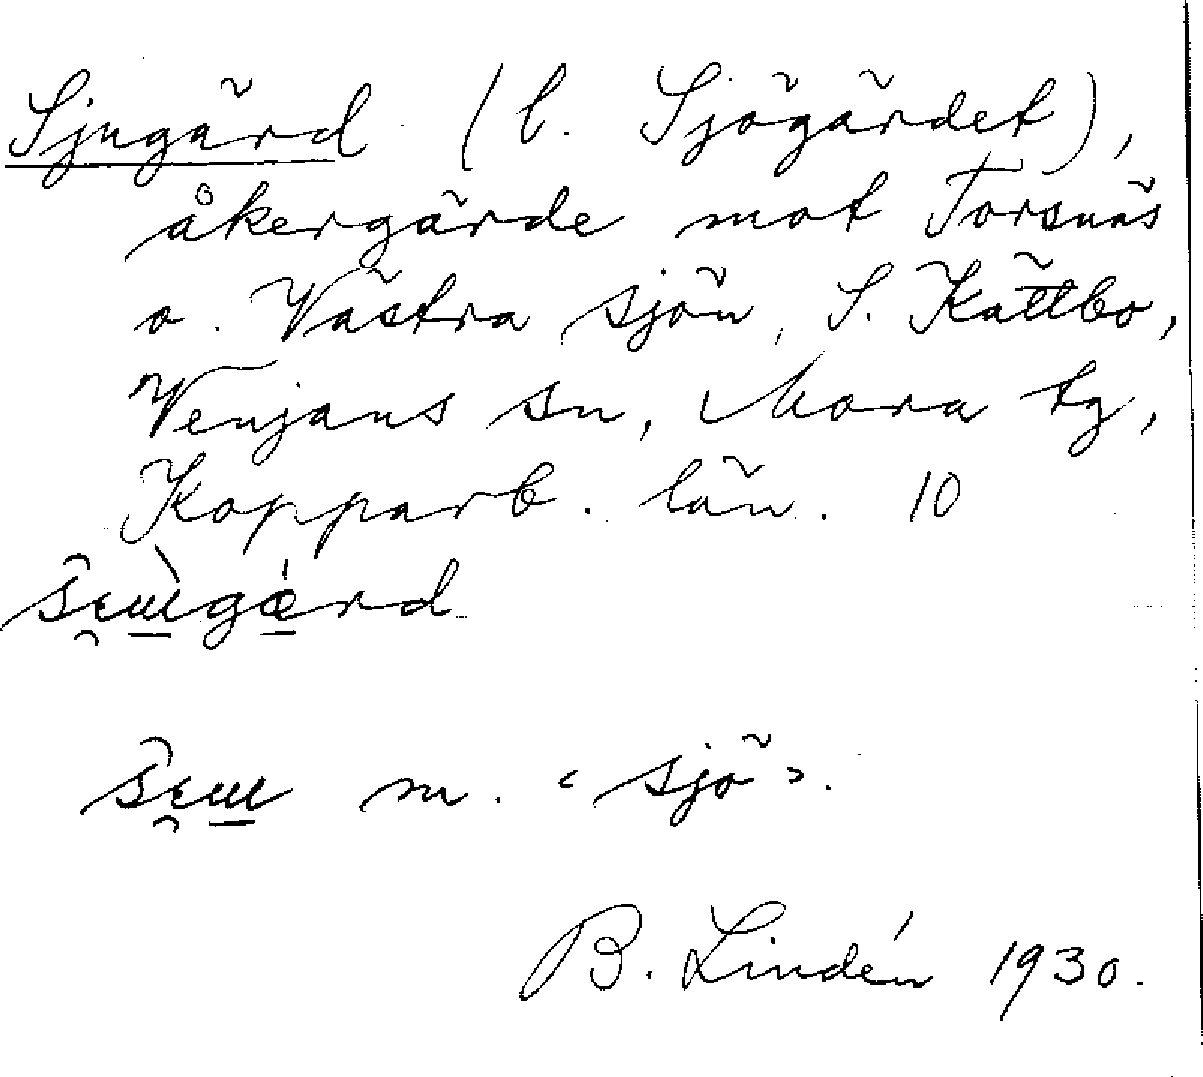 Sjugärd (l. Sjögärdet),
åkergärde mot Torsnäs
o. Västra sjön, S. Kättbo,
Venjans sn, Mora tg,
Kopparb. län. 10
m. ‹sjö›.
B. Lindén 1930.